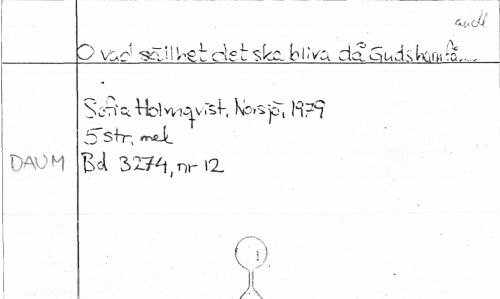 andl
O vad sällhet det ska bliva då Guds barn få....
Sofia Holmqvist, Norsjö, 1979
5 str, mel
DAUM Bd 3274, nr 12